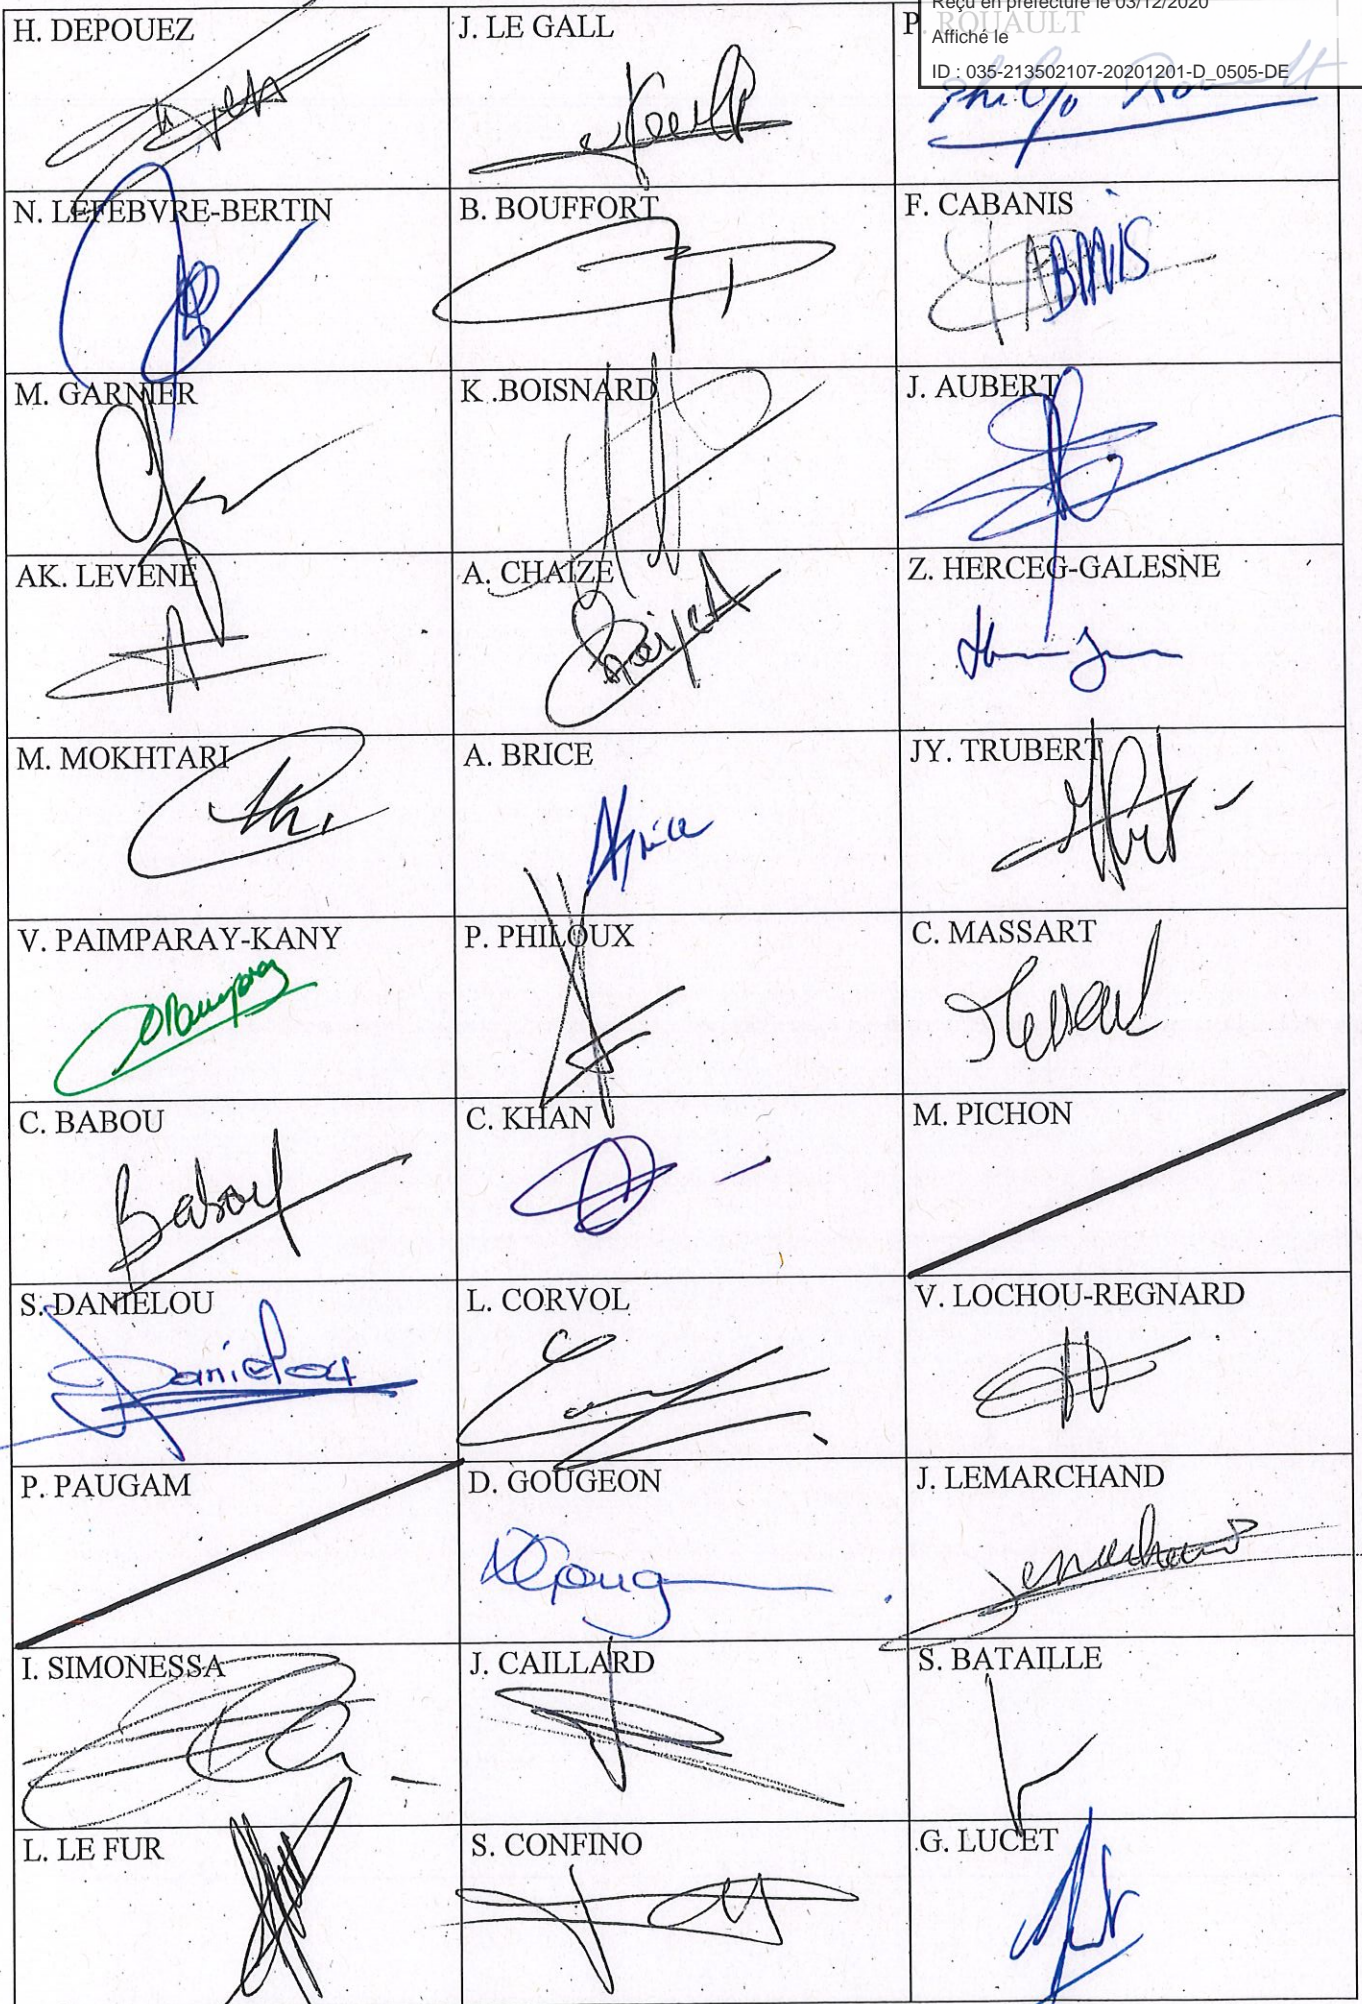 Reçu en préfecture le 03/12/2020
Affiché le
ID : 035-213502107-20201201-D_0505-DE
H. DEPOUEZ
J. LE GALL
P. ROUAULT
N. LEFEBVRE-BERTIN
B. BOUFFORT
F. CABANIS
CABANIS
M. GARNIER
K .BOISNARD
J. AUBERT
AK. LEVENE
A. CHAIZE
Z. HERCEG-GALESNE
M. MOKHTARI
A. BRICE
JY. TRUBERT
V. PAIMPARAY-KANY
P. PHILOUX
C. MASSART
C. BABOU
Babou
C. KHAN
M. PICHON
S. DANIELOU
Danielou
L. CORVOL
V. LOCHOU-REGNARD
P. PAUGAM
D. GOUGEON
J. LEMARCHAND
I. SIMONESSA
J. CAILLARD
S. BATAILLE
L. LE FUR
S. CONFINO
G. LUCET